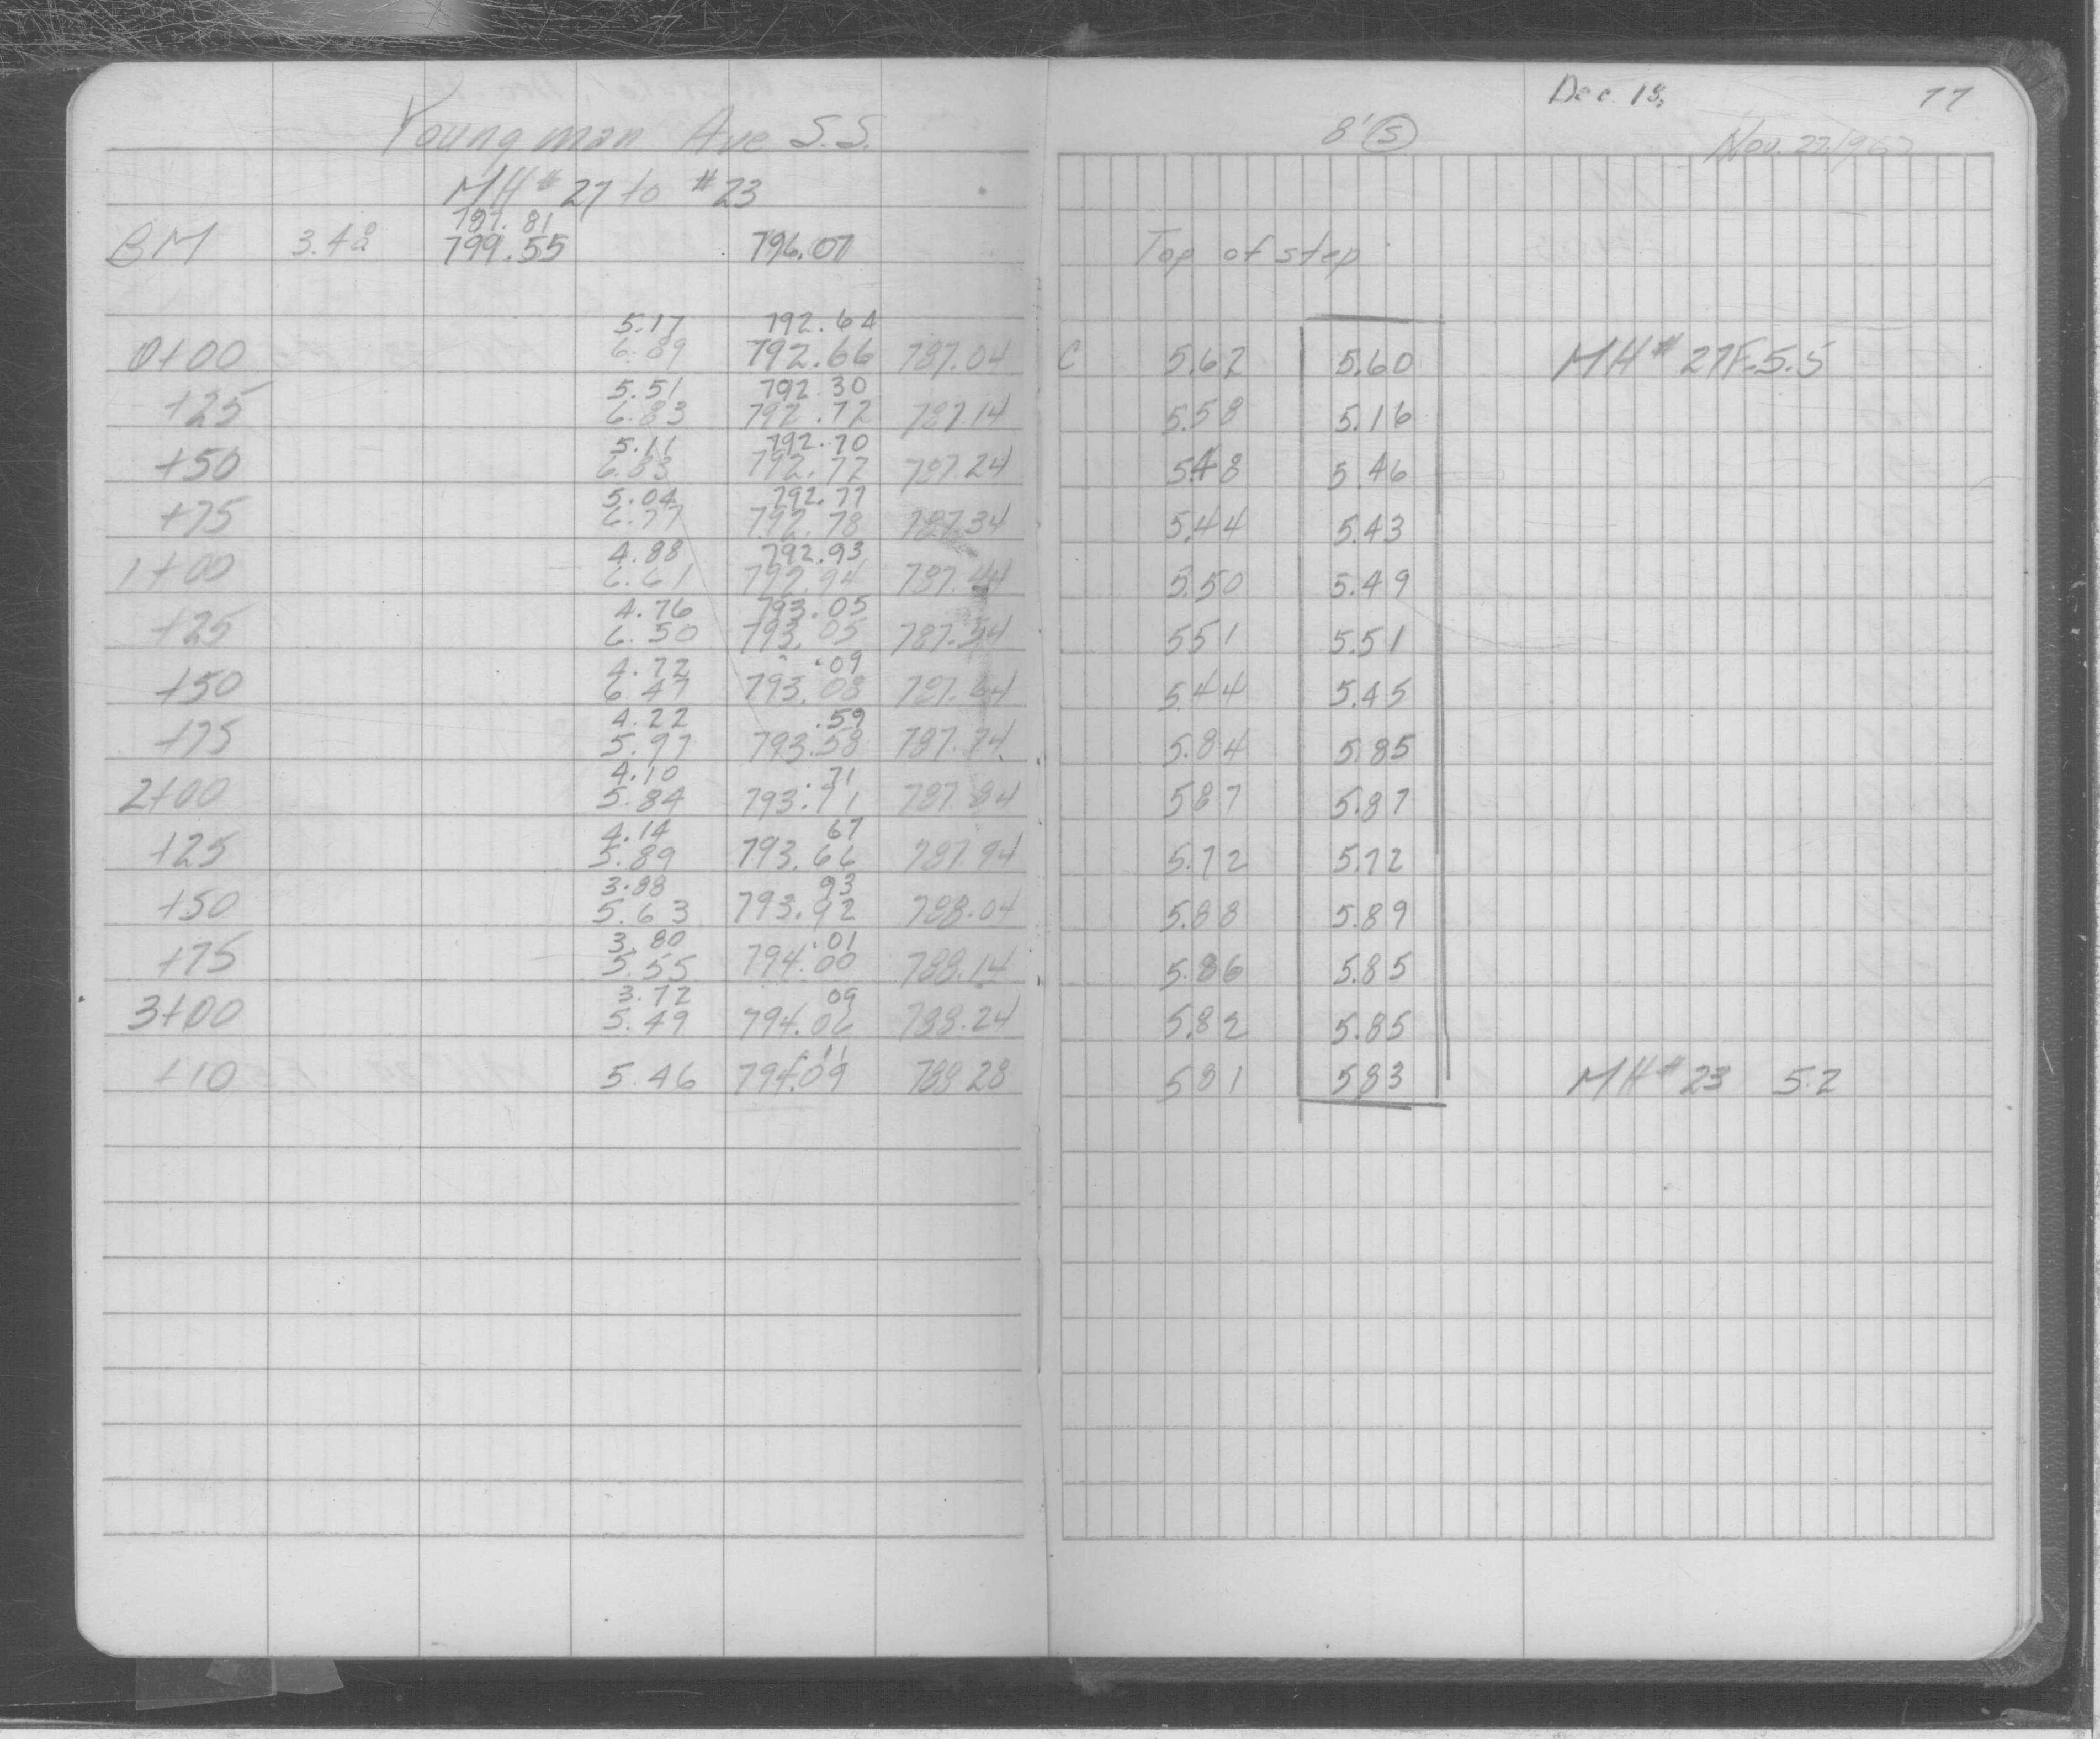 Dec. 18, 77
Youngman Ave S.S. 8' S Nov. 22, 1967
MH# 27 to #23
797.81
BM 3.48 799.55 796.07 Top of step
5.17 792.64
0+00 6.89 792.66 787.04 C 5.62 5.60 MH# 27 F.5.5
5.51 792.30
+25 6.83 792.72 787.14 5.58 5.16
5.11 792.70
+50 6.83 792.72 787.24 5.48 5.46
5.04 792.77
+75 6.77 792.78 787.34 5.44 5.43
4.88 792.93
1+00 6.61 792.94 787.44 5.50 5.49
4.76 793.05
+25 6.50 793.05 787.54 5.51 5.51
4.72 .09
+50 6.47 793.08 787.64 5.44 5.45
4.22 .59
+75 5.97 793.58 787.74 5.84 5.85
4.10 .71
2+00 5.84 793.71 787.84 5.87 5.87
4.14 67
+25 5.89 793.66 787.94 5.72 5.72
3.88 93
+50 5.63 793.92 788.04 5.88 5.89
3.80 .01
+75 5.55 794.00 788.14 5.86 5.85
3.72 09
3+00 5.49 794.06 788.24 5.82 5.85
.11
+10 5.46 794.09 788.28 5.81 5.83 MH# 23 5.2